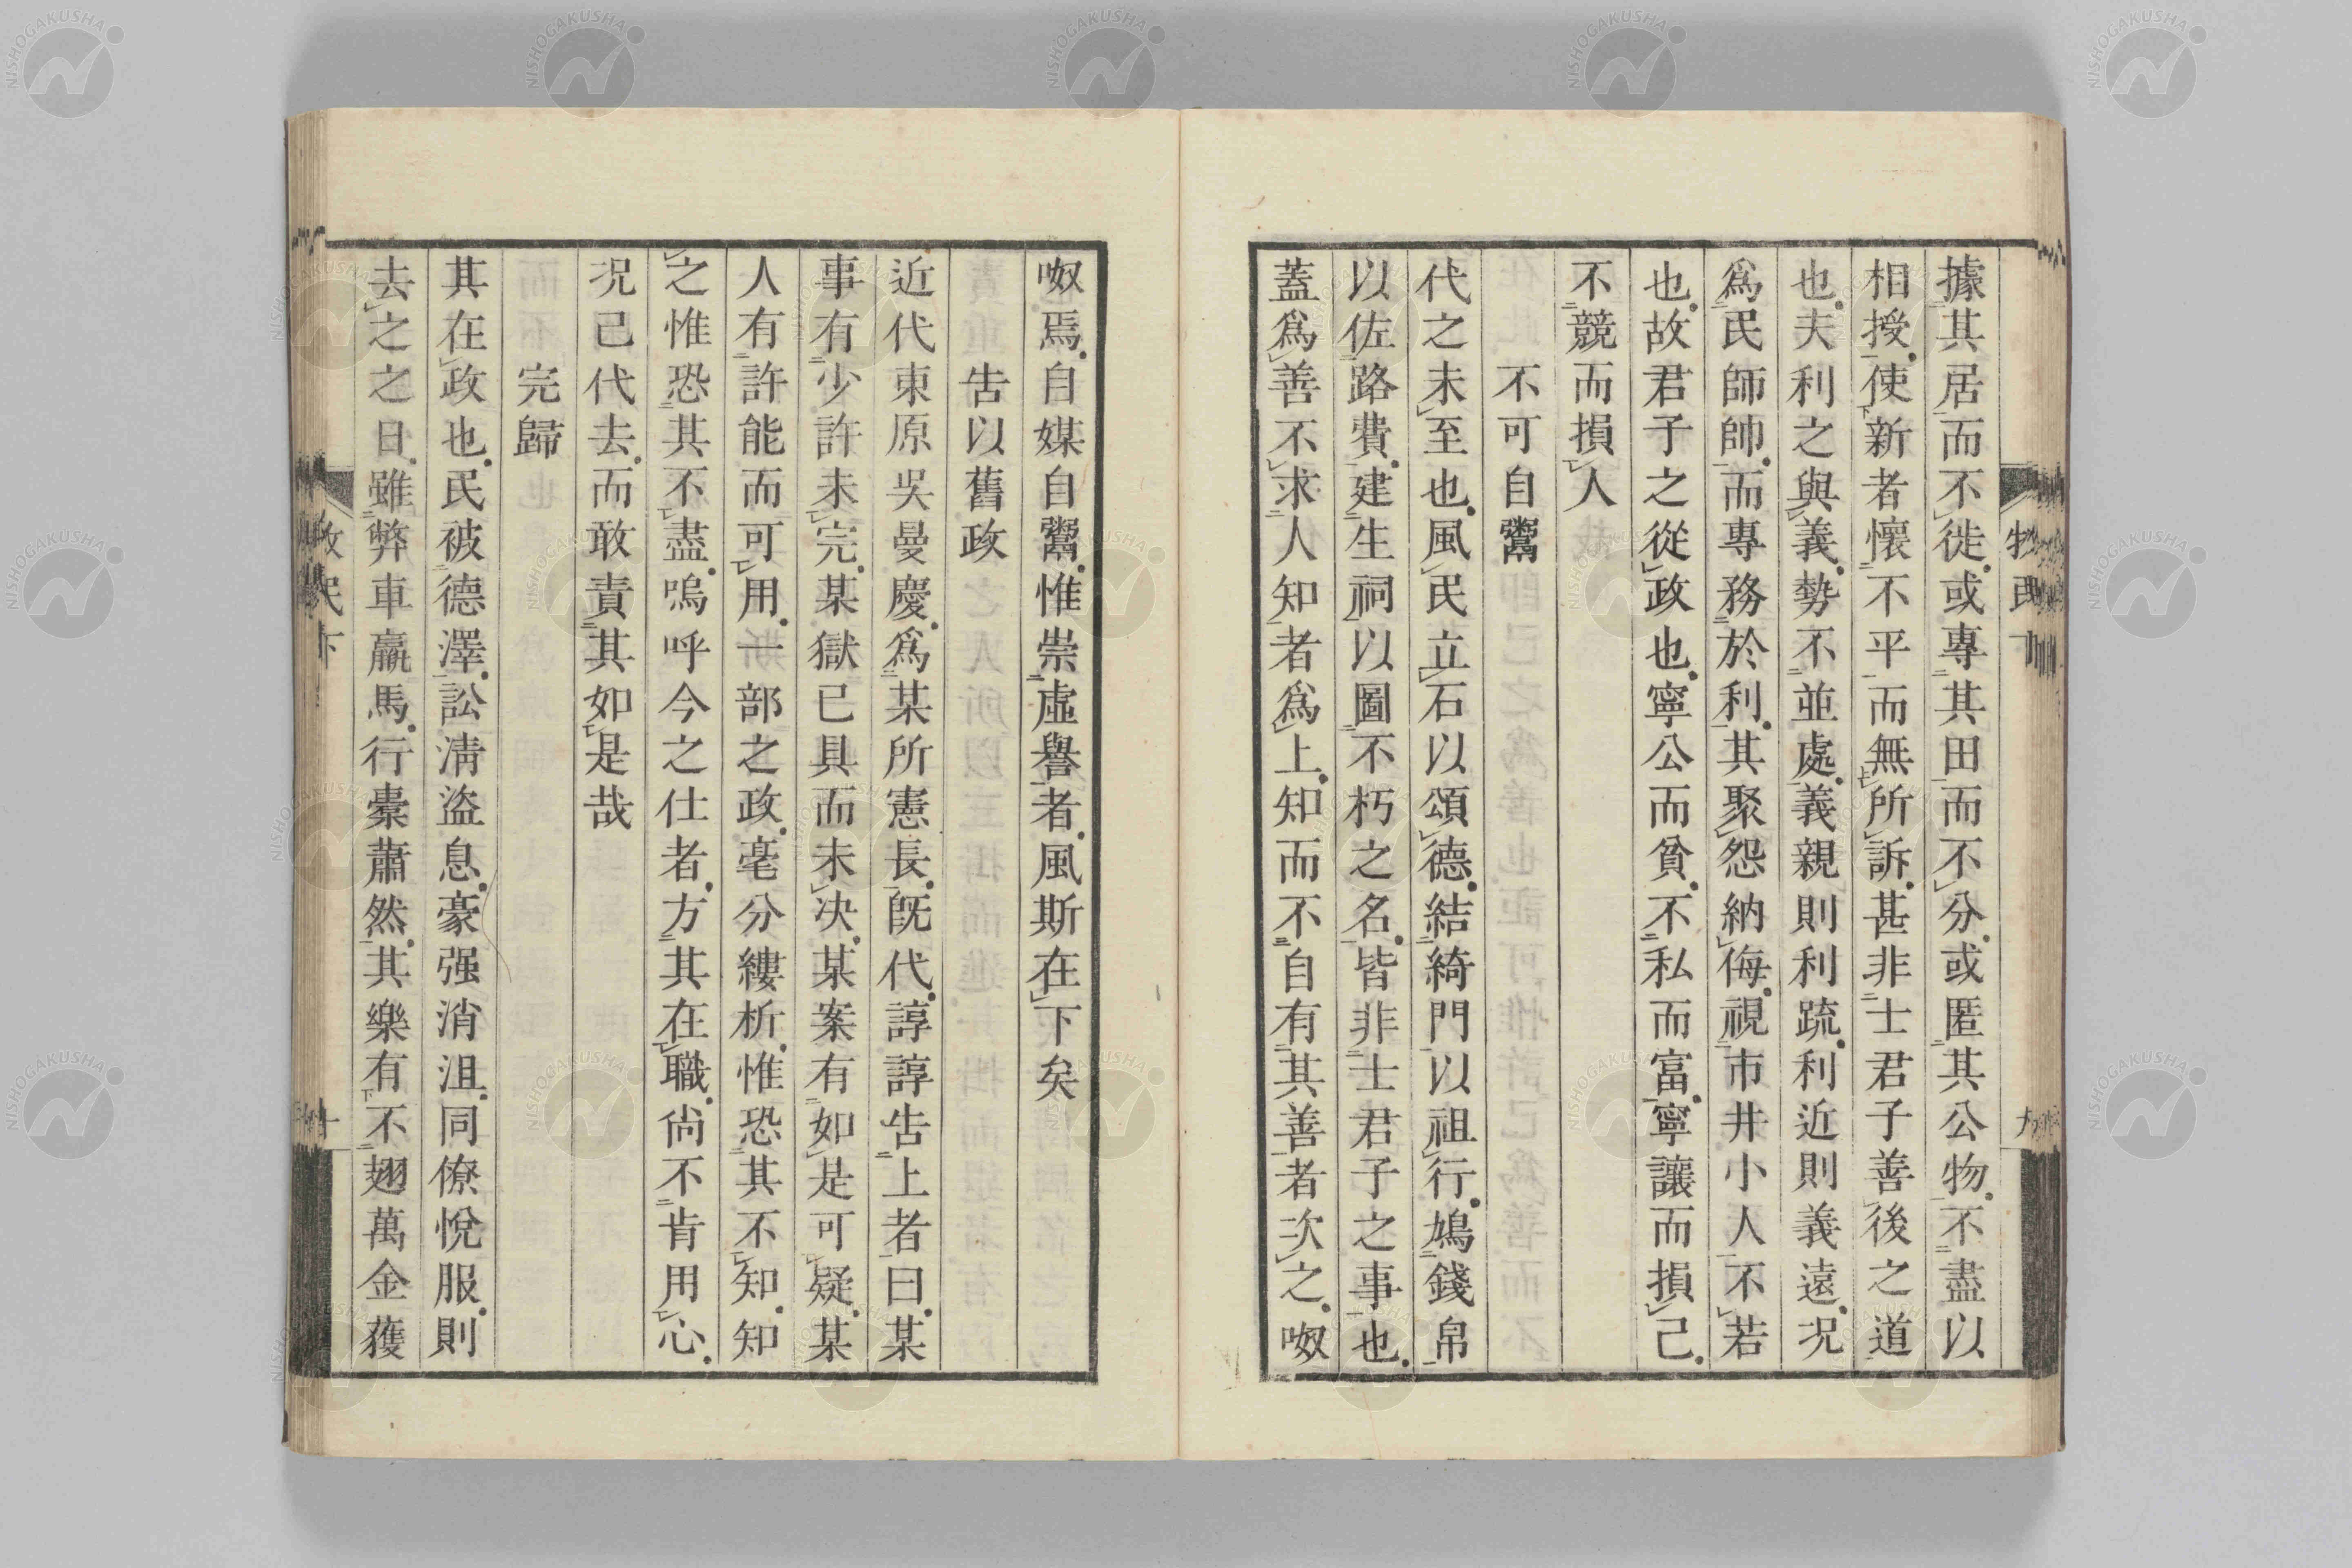 據其居而不徙或專其田而不分或匿其公物不盡以
相授使新者懷不平而無所訴甚非士君子善後之道
也夫利之與義勢不並處義親則利疏利近則義遠况
爲民師帥而專務於利其聚怨納侮視市井小人不若
也故君子之從政也寧公而貧不私而富寧讓而損己
不競而損人
不可自鬻
代之未至也風民立石以頌德結綺門以祖行鳩錢帛
以佐路費建生祠以圖不朽之名皆非士君子之事也
蓋爲善不求人知者爲上知而不自有其善者次之呶
呶焉自媒自鬻惟崇虛譽者風斯在下矣
告以舊政
近代東原吳曼慶爲某所憲長旣代諄諄告上者曰某
事有少許未完某獄已具而未决某案有如是可疑某
人有許能而可用一部之政毫分縷析惟恐其不知知
之惟恐其不盡嗚呼今之仕者方其在職尙不肯用心
况已代去而敢責其如是哉
完歸
其在政也民被德澤訟清盜息豪强消沮同僚悅服則
去之之日雖弊車羸馬行橐蕭然其樂有不翅萬金獲
牧民下
九
牧民下
十
NISHOGAKUSHA